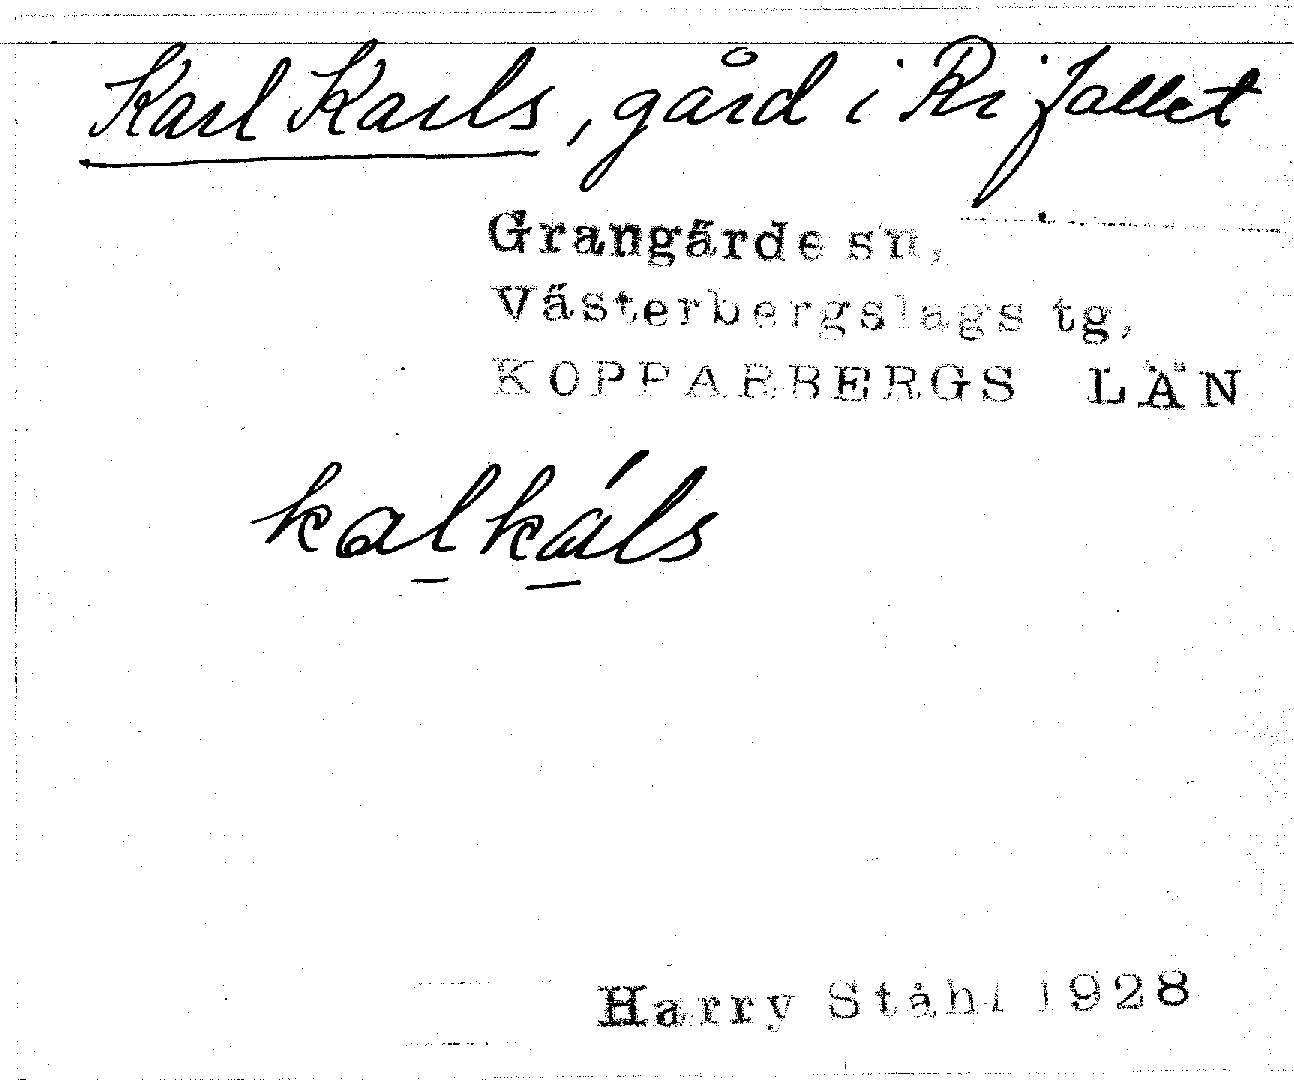 Karl Karls, gård i Rifallet
Grangärde sn,
Västerbergslags tg,
KOPPARBERGS LÄN
kalkáls
Harry Ståhl 1928